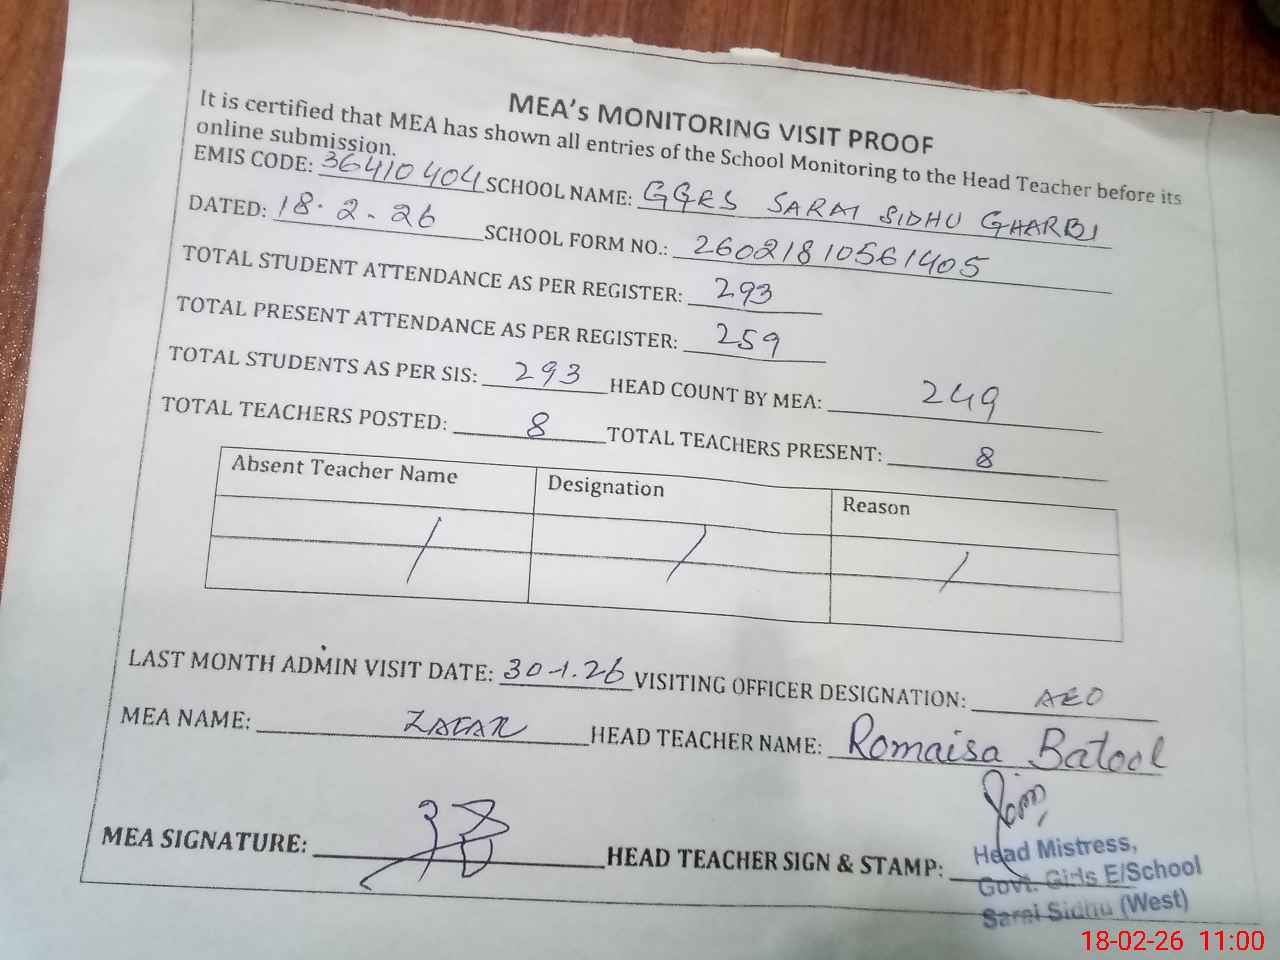 MEA's MONITORING VISIT PROOF
It is certified that MEA has shown all entries of the School Monitoring to the Head Teacher before its
online submission.
EMIS CODE: 36410404 SCHOOL NAME: GGES SARAI SIDHU GHARBI
DATED: 18.2.26 SCHOOL FORM NO.: 26021810561405
TOTAL STUDENT ATTENDANCE AS PER REGISTER: 293
TOTAL PRESENT ATTENDANCE AS PER REGISTER: 259
TOTAL STUDENTS AS PER SIS: 293 HEAD COUNT BY MEA: 249
TOTAL TEACHERS POSTED: 8 TOTAL TEACHERS PRESENT: 8
Absent Teacher Name Designation Reason
/ / /
LAST MONTH ADMIN VISIT DATE: 30-1.26 VISITING OFFICER DESIGNATION: AEO
MEA NAME: ZAFAR HEAD TEACHER NAME: Romaisa Batool
MEA SIGNATURE: HEAD TEACHER SIGN & STAMP:
Head Mistress,
Govt. Girls E/School
Sarai Sidhu (West)
18-02-26 11:00